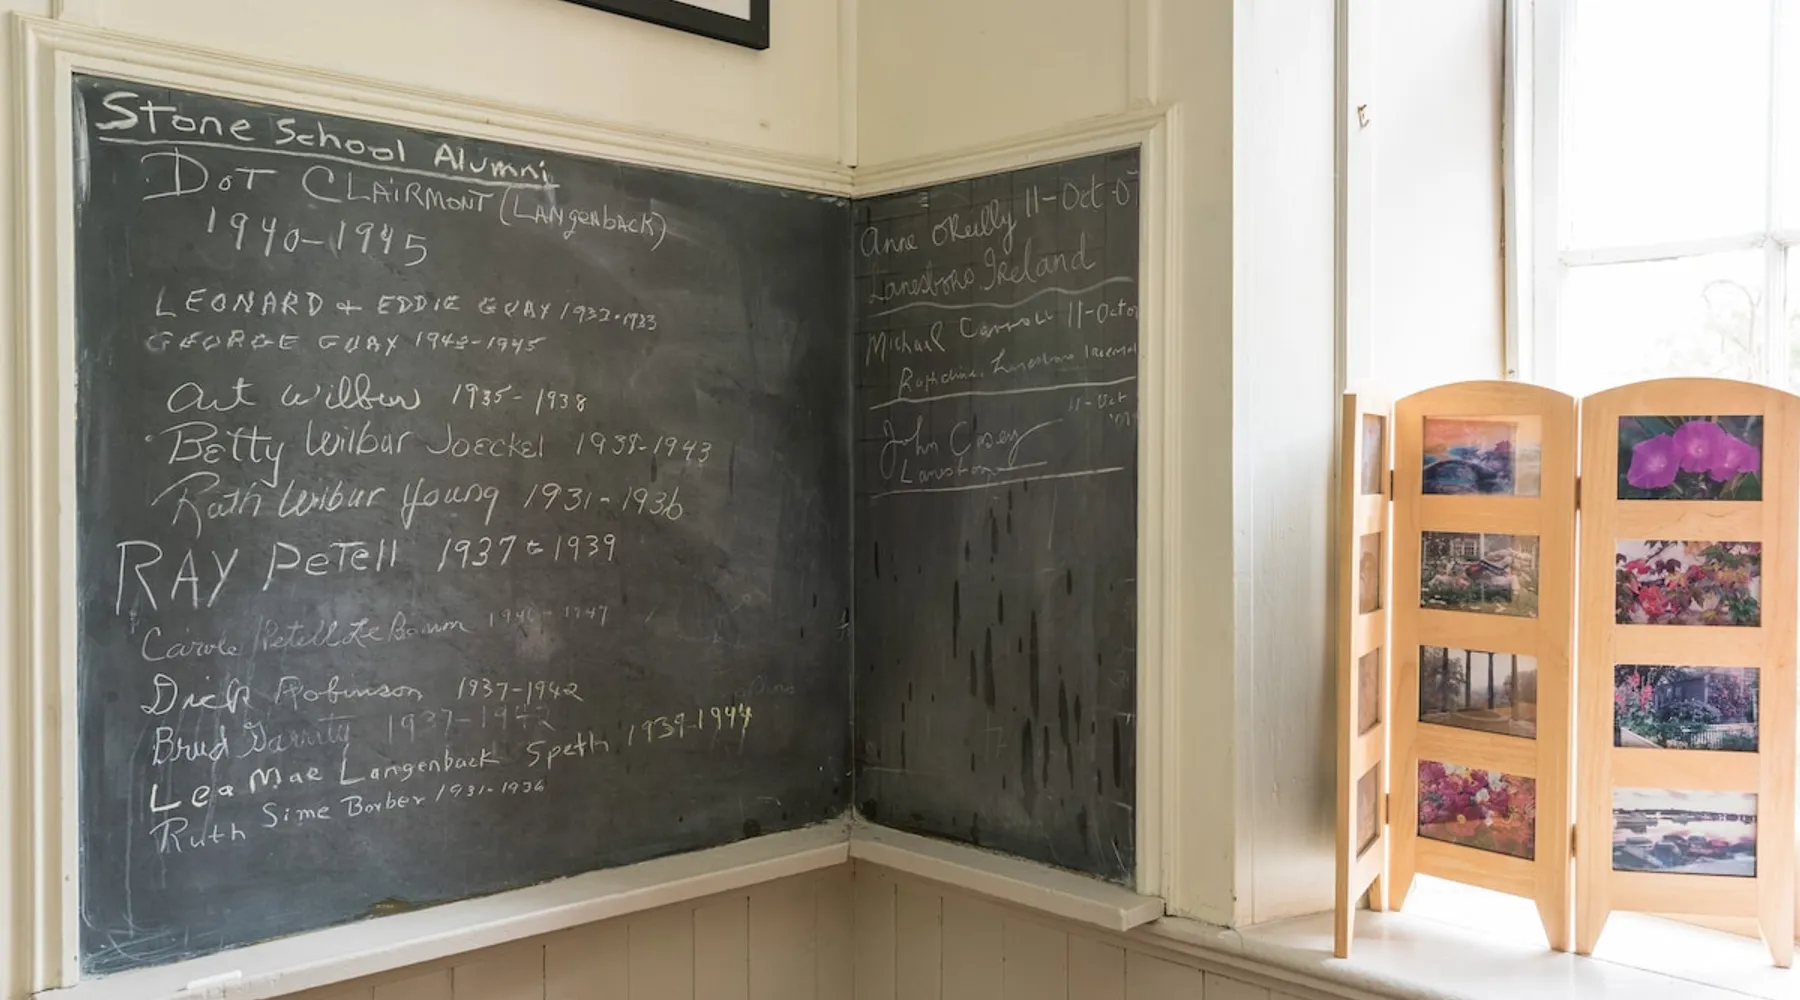 Stone School Alumni
DOT CLAIRMONT (LANgenbACK)
1940-1945
LEONARD & EDDIE GUAY 1932-1933
GEORGE GUAY 1940-1945
Art Wilbur 1935-1938
Betty Wilbur Joeckel 1938-1943
Ruth Wilbur Young 1931-1936
RAY PeTell 1937 to 1939
Carole Petell LeBaron 1947
Dick Robinson 1937-1942
Brud Garrity 1937-1942
Lea Mae Langenback Speth 1939-1944
Ruth Sime Barber 1931-1936
Anne OReilly 11-Oct-0
Lanesboro Ireland
Michael Carroll 11-Oct
Lanesboro
John Casey 11-Oct
Lanesboro